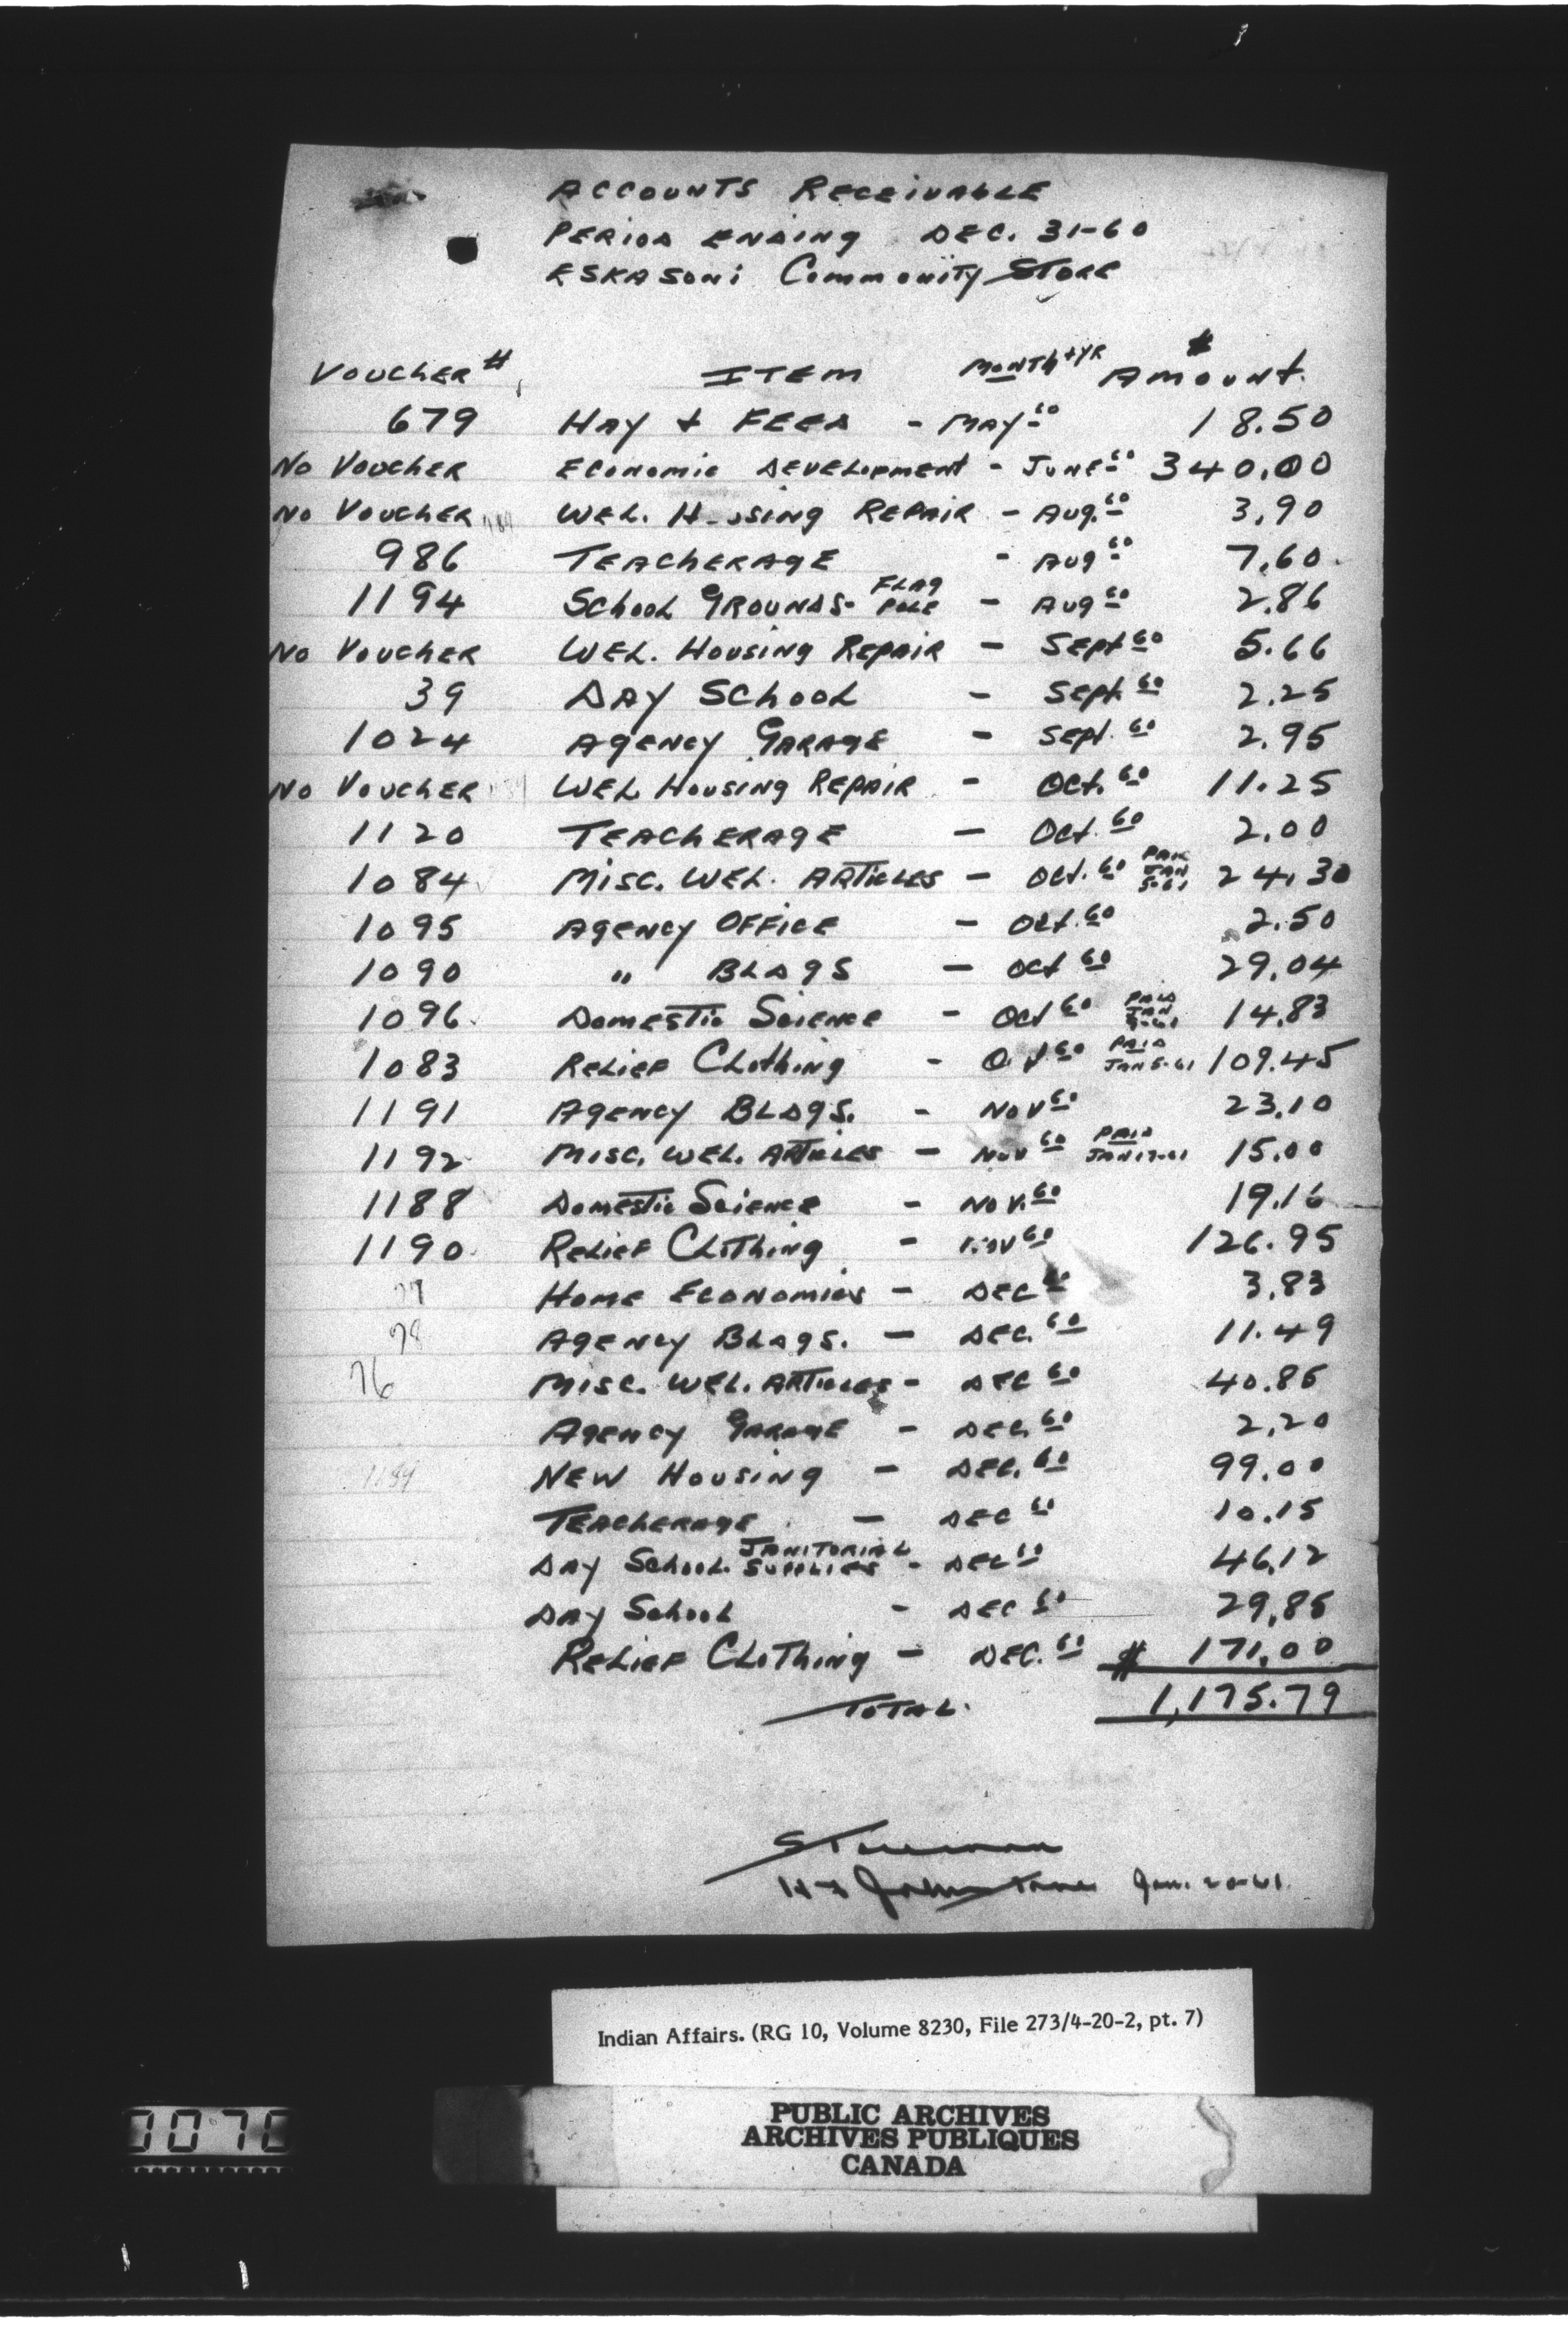 ACCOUNTS RECEIVABLE
PERIOD ENDING DEC. 31-60
ESKASONI COMMUNITY STORE
VOUCHER # ITEM MONTH + YR $ AMOUNT.
679 HAY + FEED - MAY 60 18.50
NO VOUCHER ECONOMIC DEVELOPMENT - JUNE 60 340.00
NO VOUCHER WEL. HOUSING REPAIR - AUG. 60 3.90
986 TEACHERAGE - AUG 60 7.60
1194 SCHOOL GROUNDS - FLAG POLE - AUG 60 2.86
NO VOUCHER WEL. HOUSING REPAIR - SEPT 60 5.66
39 DAY SCHOOL - SEPT. 60 2.25
1024 AGENCY GARAGE - SEPT. 60 2.95
NO VOUCHER WEL HOUSING REPAIR - OCT. 60 11.25
1120 TEACHERAGE - OCT. 60 2.00
1084 MISC. WEL. ARTICLES - OCT. 60 PAID JAN 5-61 24.30
1095 AGENCY OFFICE - OCT. 60 2.50
1090 " BLDGS - OCT 60 29.04
1096 DOMESTIC SCIENCE - OCT 60 PAID JAN 5-61 14.83
1083 RELIEF CLOTHING - OCT 60 PAID JAN 5-61 109.45
1191 AGENCY BLDGS. - NOV 60 23.10
1192 MISC. WEL. ARTICLES - NOV 60 PAID JAN 17-61 15.00
1188 DOMESTIC SCIENCE - NOV. 60 19.16
1190 RELIEF CLOTHING - NOV 60 126.95
77 HOME ECONOMICS - DEC 60 3.83
78 AGENCY BLDGS. - DEC. 60 11.49
76 MISC. WEL. ARTICLES - DEC 60 40.85
AGENCY GARAGE - DEC. 60 2.20
1189 NEW HOUSING - DEC. 60 99.00
TEACHERAGE - DEC 60 10.15
DAY SCHOOL JANITORIAL SUPPLIES - DEC 60 46.12
DAY SCHOOL - DEC 60 29.85
RELIEF CLOTHING - DEC. 60 $ 171.00
TOTAL. 1,175.79
Jan. 20-61.
Indian Affairs. (RG 10, Volume 8230, File 273/4-20-2, pt. 7)
PUBLIC ARCHIVES
ARCHIVES PUBLIQUES
CANADA